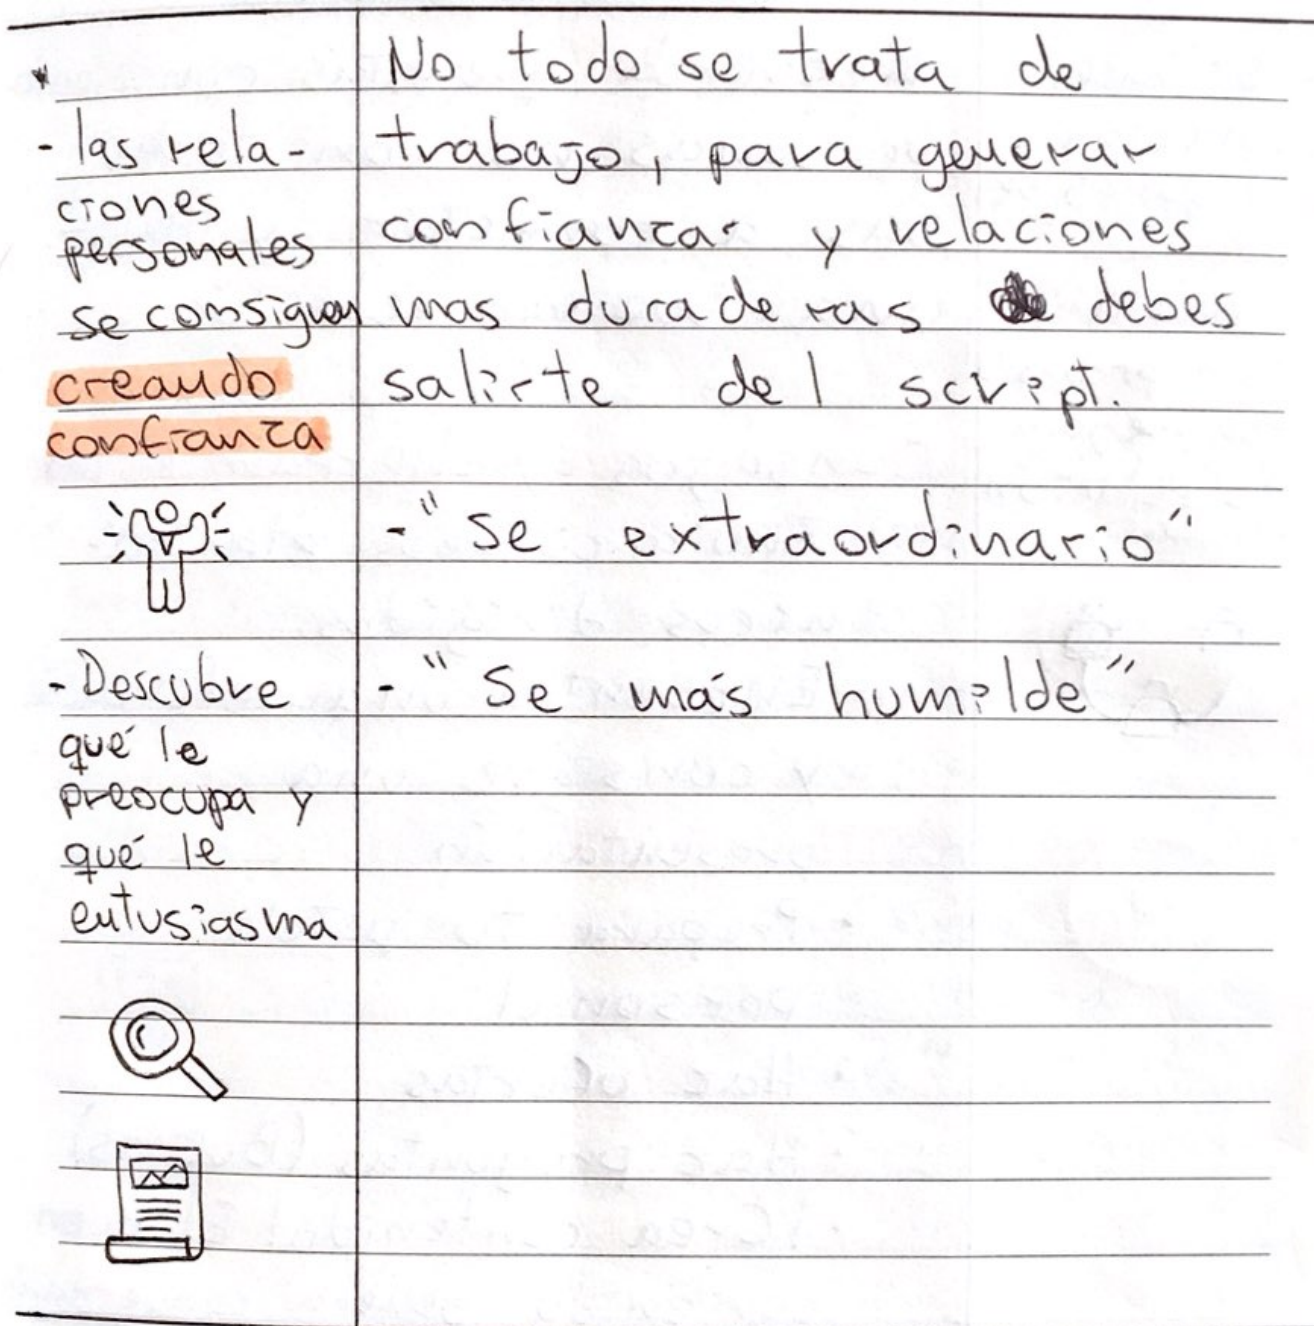 - las rela-
ciones
personales
se consiguen
creando
confianza
- Descubre
qué le
preocupa y
qué le
entusiasma
No todo se trata de
trabajo, para generar
confianza y relaciones
mas duraderas debes
salirte del script.
- "Se extraordinario"
- "Se más humilde"